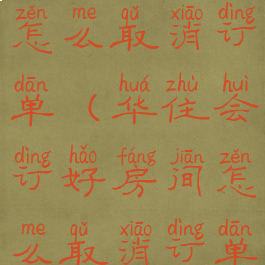 zěn me qǔ xiāo dìng
怎么取消订
dān huá zhù huì
单（华住会
dìng hǎo fáng jiān zěn
订好房间怎
me qǔ xiāo dìng dān
么取消订单